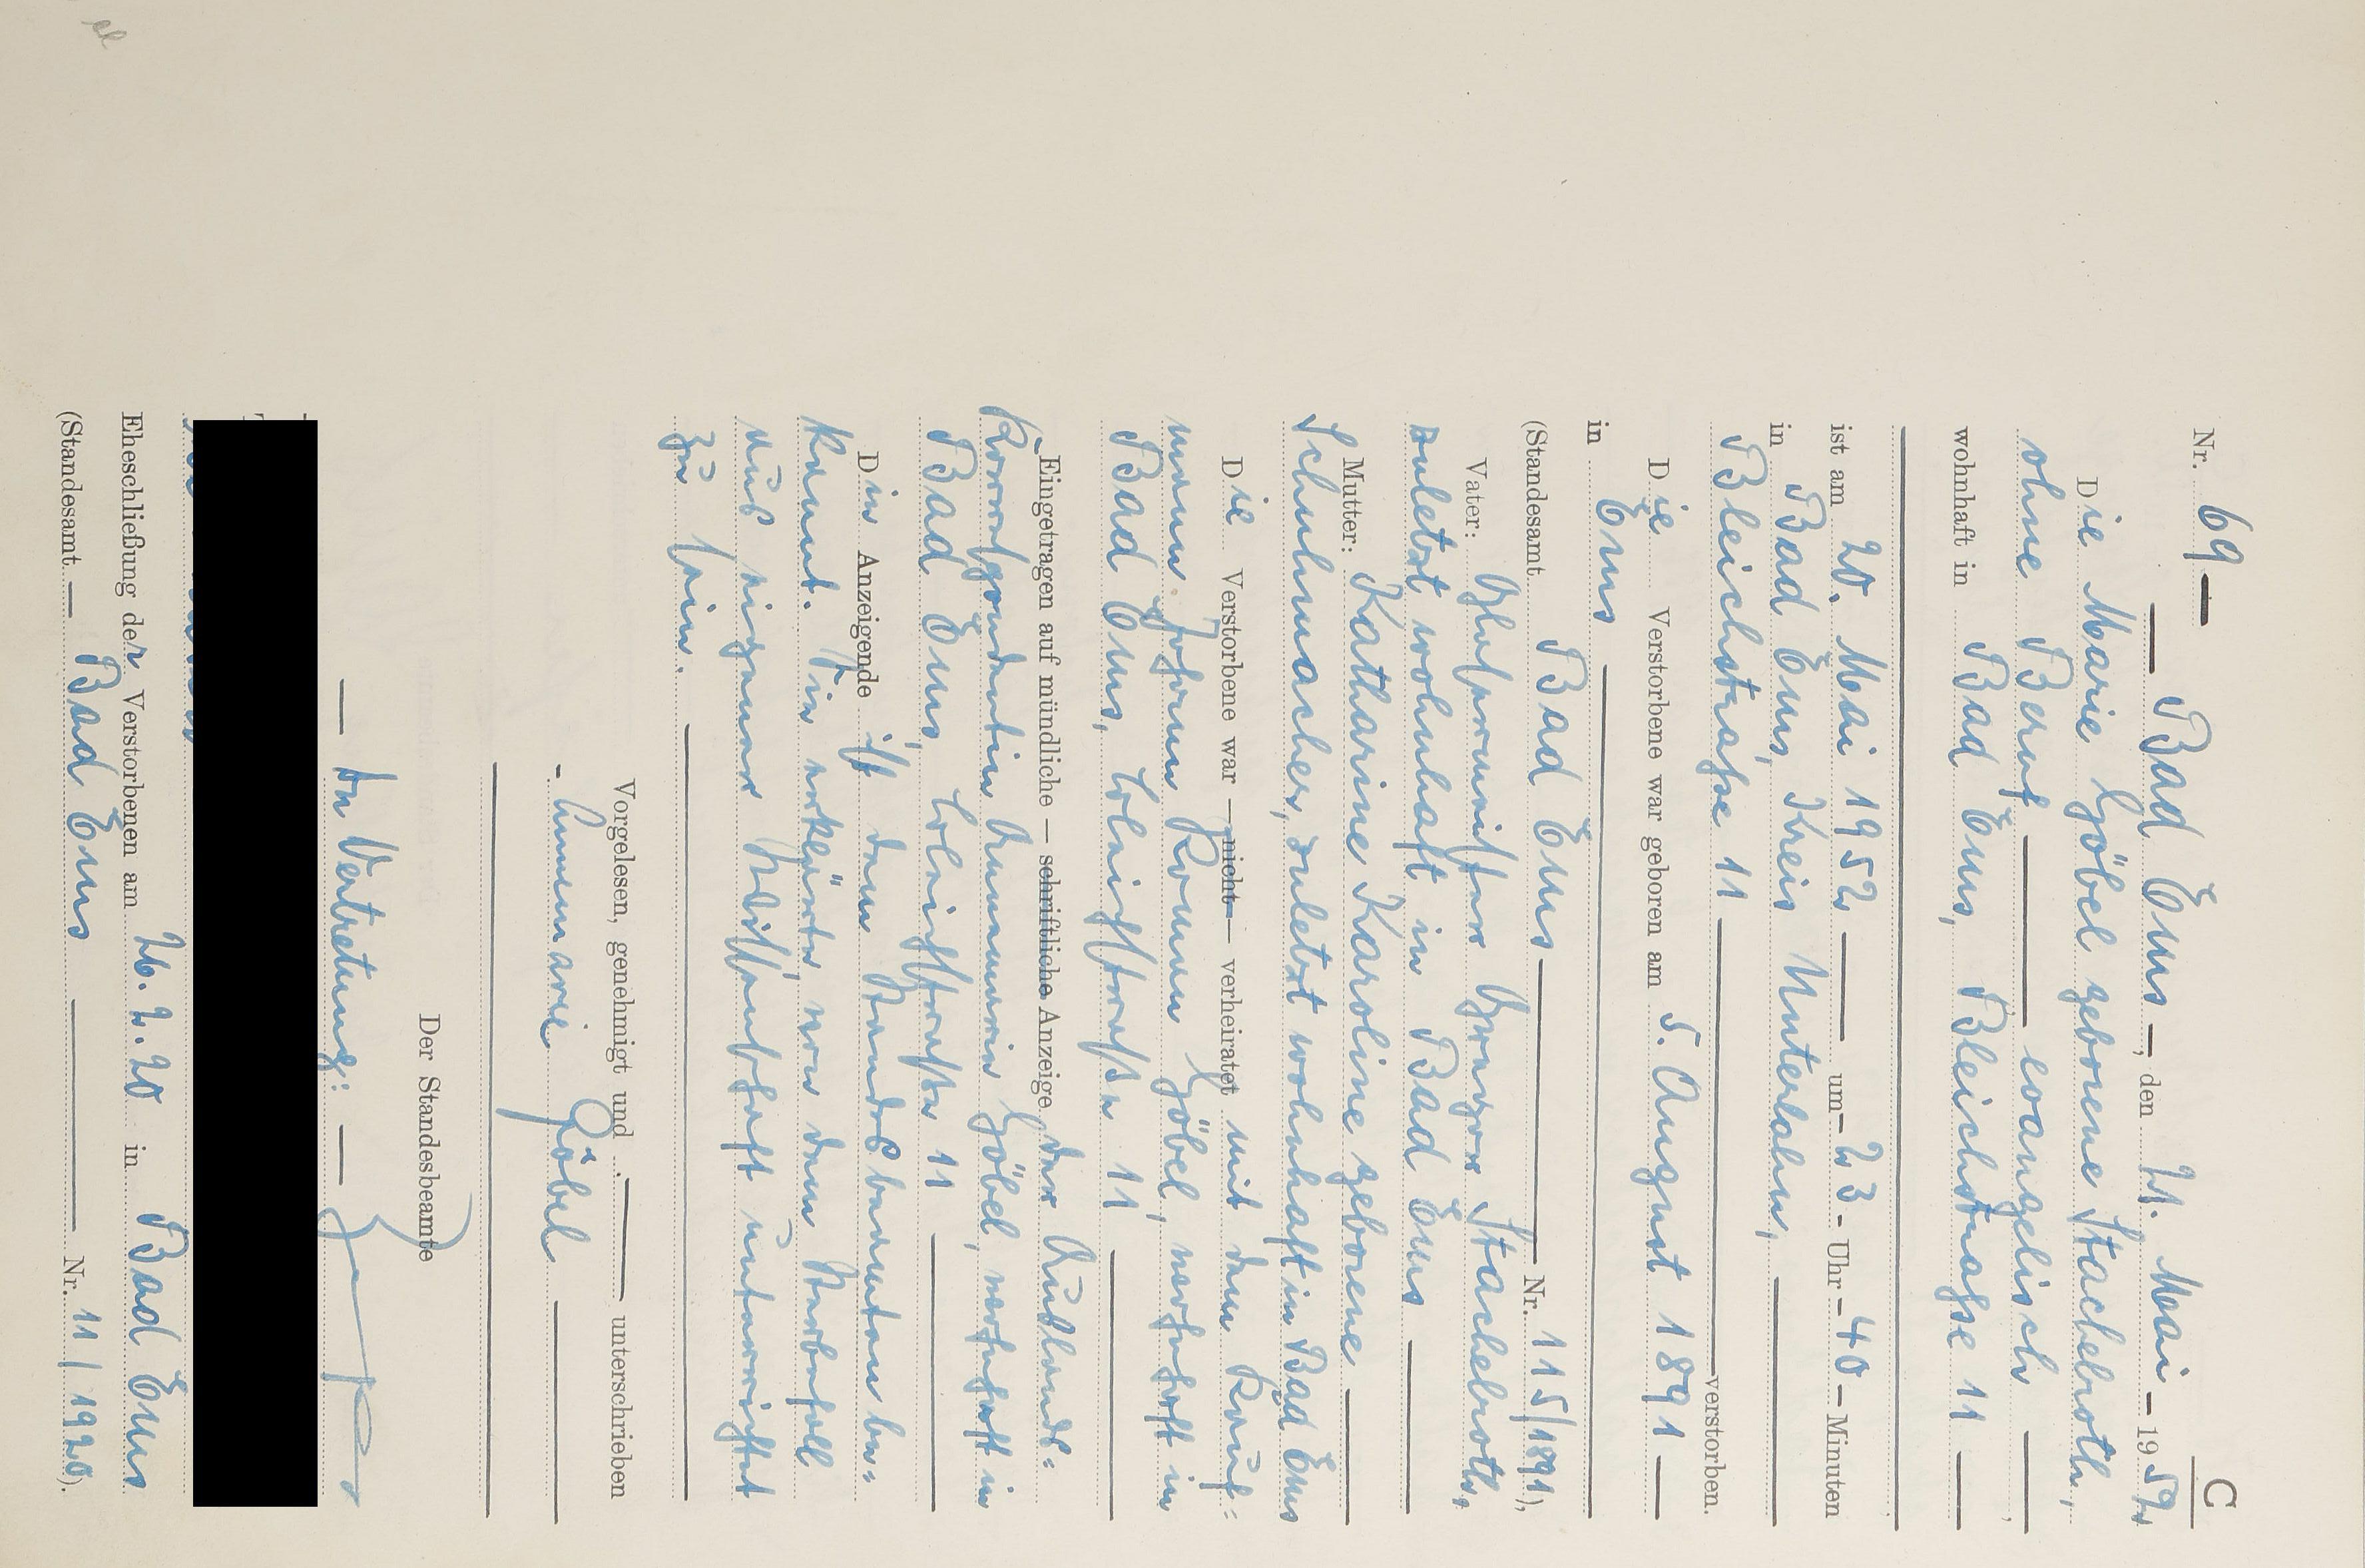 C
Nr. 69
Bad Ems, den 21. Mai 1952
Die Marie Göbel geborene Stachelroth,
ohne Beruf evangelisch
wohnhaft in Bad Ems, Bleichstrasse 11
ist am 20. Mai 1952 um 23 Uhr 40 Minuten
in Bad Ems, Kreis Unterlahn,
Bleichstrasse 11 verstorben.
Die Verstorbene war geboren am 5. August 1891
in Ems
(Standesamt Bad Ems Nr. 115/1891),
Vater: Stachelroth,
zuletzt wohnhaft in Bad Ems
Mutter: Katharine Karoline geborene
Schuhmacher, zuletzt wohnhaft in Bad Ems
Die Verstorbene war nicht verheiratet mit dem Kauf=
mann Johann Göbel, wohnhaft in
Bad Ems, Bleichstraße 11
Eingetragen auf mündliche — schriftliche Anzeige der Auslands=
Korrespondentin Annemarie Göbel, wohnhaft in
Bad Ems, Bleichstraße 11
Die Anzeigende ist dem Standesbeamten be=
kannt. Sie erklärte, von dem Sterbefall
aus eigener Wissenschaft unterrichtet
zu sein.
Vorgelesen, genehmigt und unterschrieben
Annemarie Göbel
Der Standesbeamte
In Vertretung:
Eheschließung der Verstorbenen am 26. 2. 20 in Bad Ems
(Standesamt Bad Ems Nr. 11/1920).